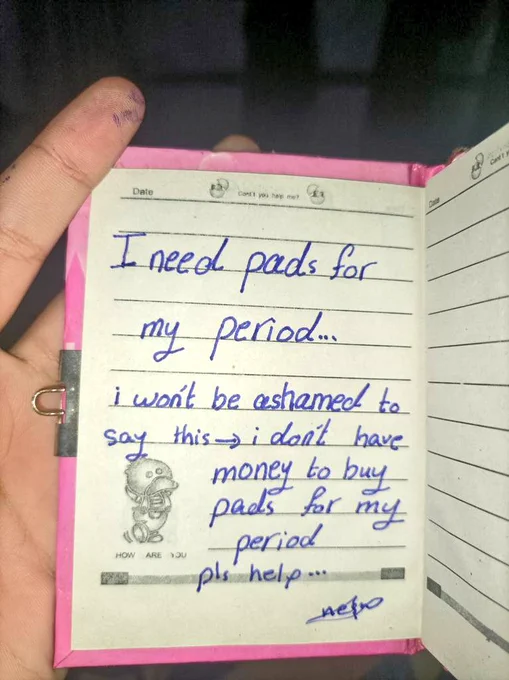 Date
Can't you help me?
I need pads for
my period...
i won't be ashamed to
say this → i don't have
money to buy
pads for my
period
HOW ARE YOU
pls help...